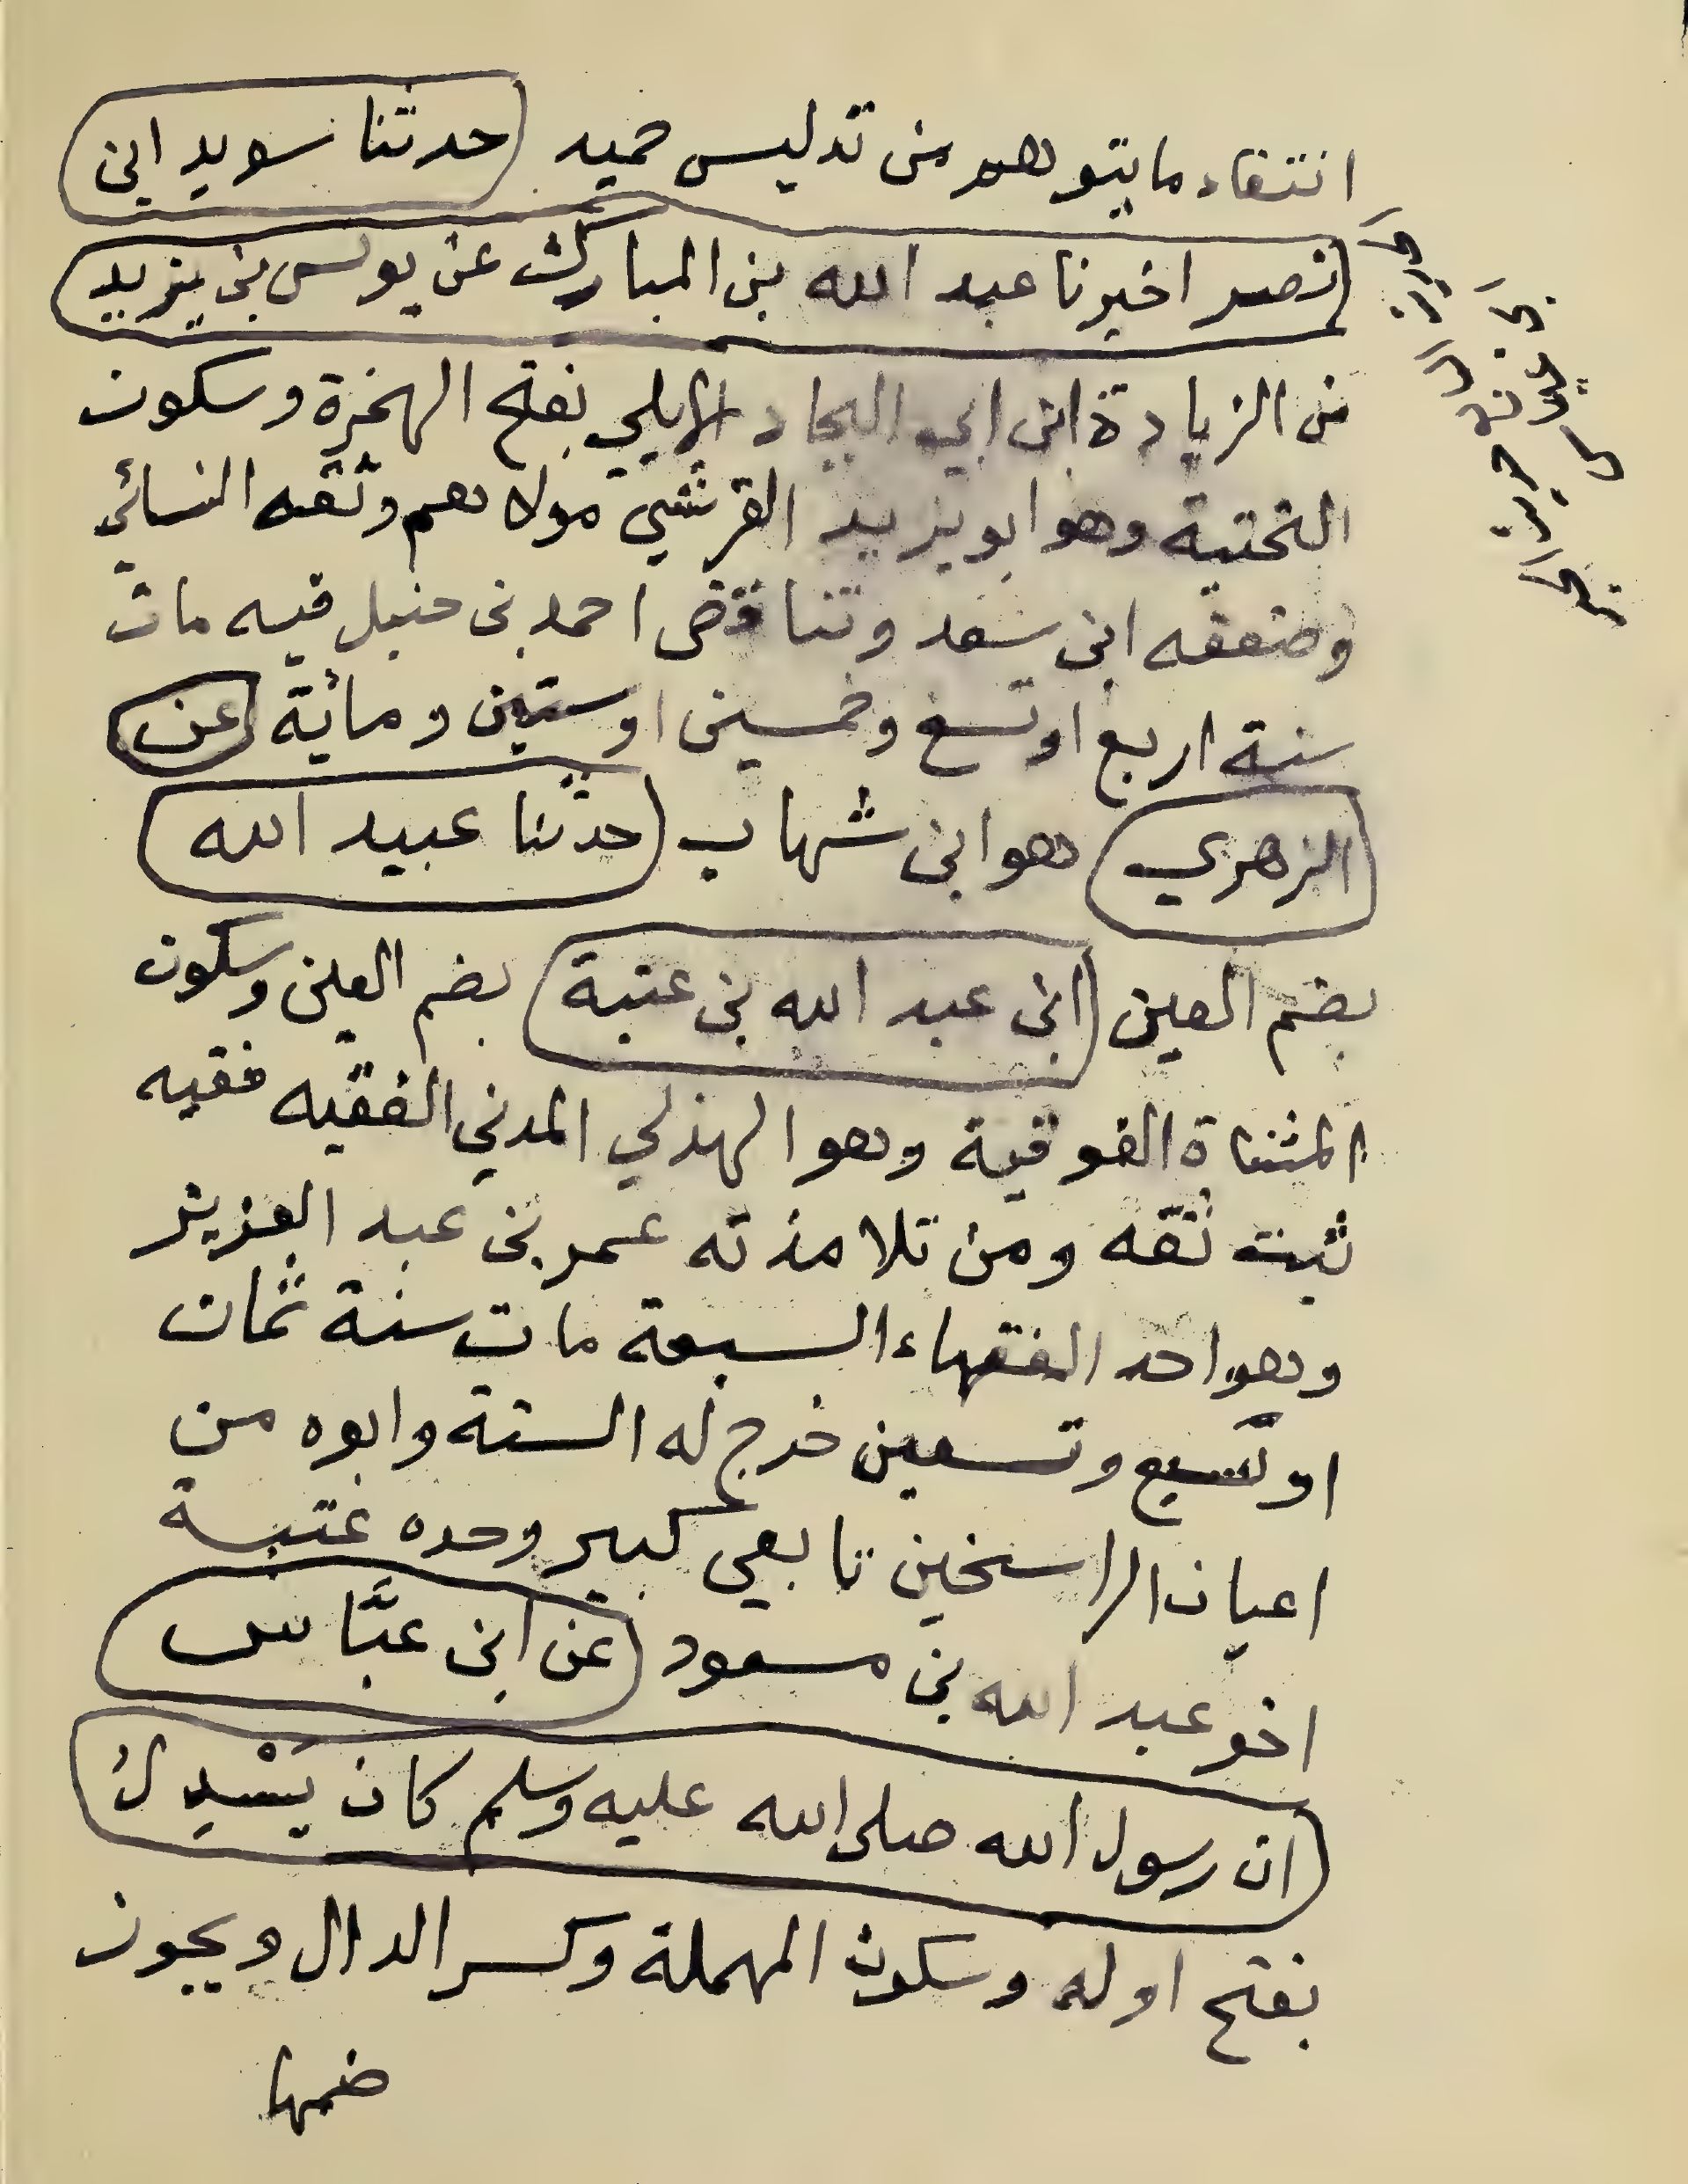 انتقاء ما يتوهم من تدليس حميد حدثنا سويد ابن
نصر اخبرنا عبد الله بن المبارك عن يونس بن يزيد
من الزيادة ابن ابي النجاد الايلي بفتح الهمزة وسكون
التحتية وهو ابو يزيد القرشي مولاهم وثقه النسائي
وضعفه ابن سعد وتناقض احمد بن حنبل فيه مات
سنة اربع او تسع وخمسين او ستين ومائة عن
الزهري هو ابن شهاب حدثنا عبيد الله
بضم العين ابن عبد الله بن عتبة بضم العين وسكون
المثناة الفوقية وهو الهذلي المدني الفقيه فقيه
ثبت ثقه ومن تلامذته عمر بن عبد العزيز
وهو احد الفقهاء السبعة مات سنة ثمان
او تسع وتسعين خرج له الستة وابوه من
اعيان الراسخين تابعي كبير وحده عتبة
اخو عبد الله بن مسعود عن ابن عبَّاس
ان رسول الله صلى الله عليه وسلم كان يَسْدِلُ
بفتح اوله وسكون المهملة وكسر الدال ويجوز
ضمها